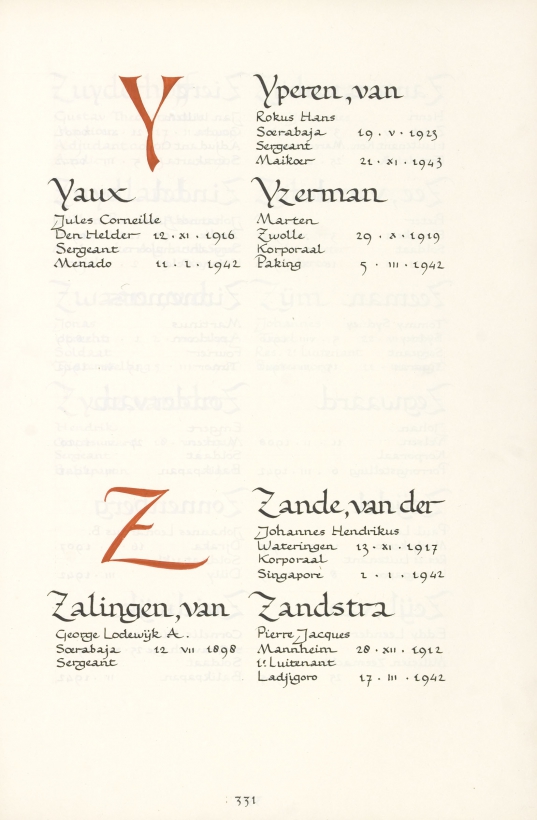 Y
Yaux
Jules Corneille
Den Helder 12 · XI · 1916
Sergeant
Menado 11 · I · 1942
Yperen, van
Rokus Hans
Soerabaja 19 · V · 1923
Sergeant
Maikoer 21 · XI · 1943
Yzerman
Marten
Zwolle 29 · X · 1919
Korporaal
Paking 5 · III · 1942
Z
Zalingen, van
George Lodewijk A.
Soerabaja 12 VII 1898
Sergeant
Zande, van der
Johannes Hendrikus
Wateringen 13 · XI · 1917
Korporaal
Singapore 1 · 1 · 1942
Zandstra
Pierre Jacques
Mannheim 28 · XII · 1912
1e Luitenant
Ladjigoro 17 · III · 1942
331